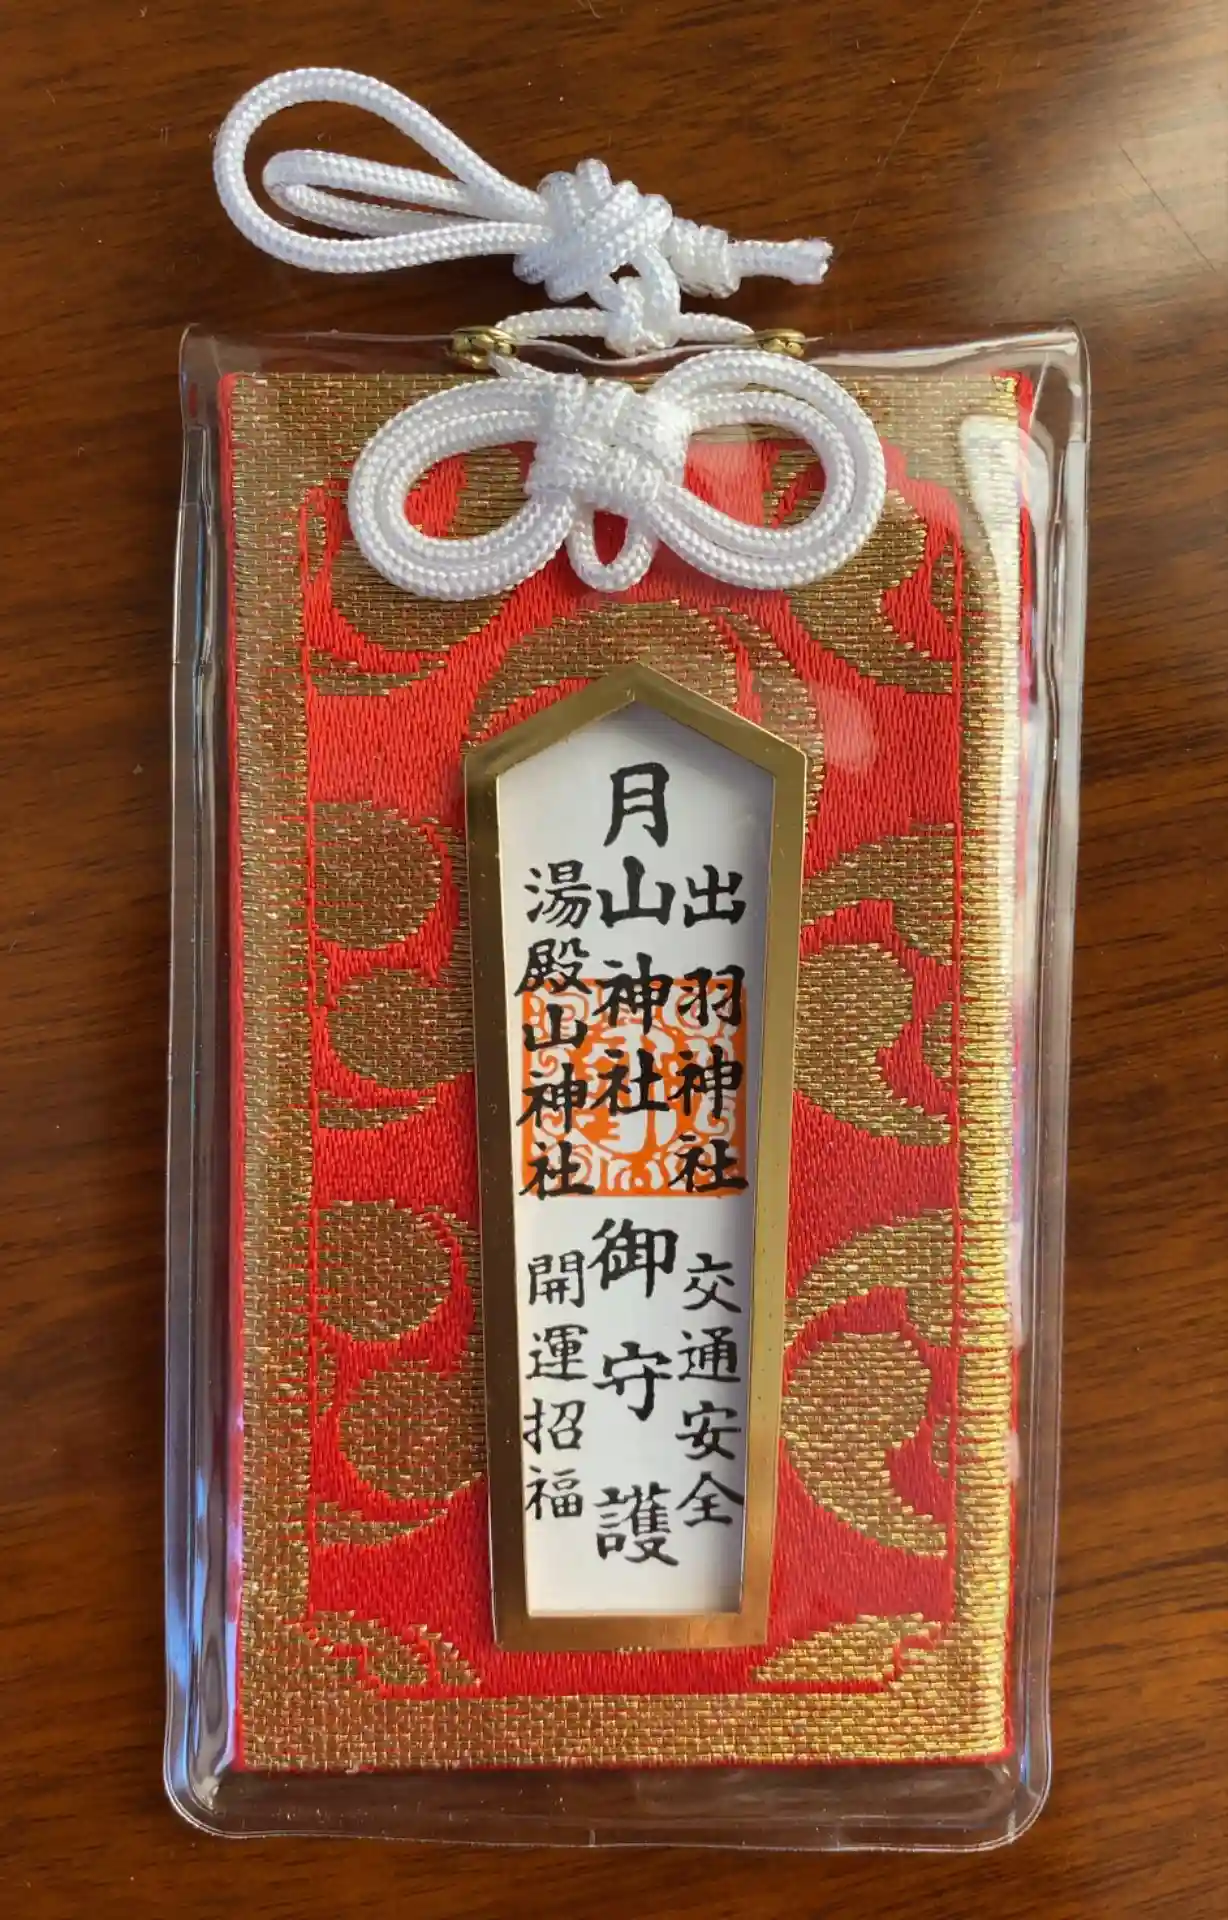 出羽神社 交通安全
月山神社 御守護
湯殿山神社 開運招福